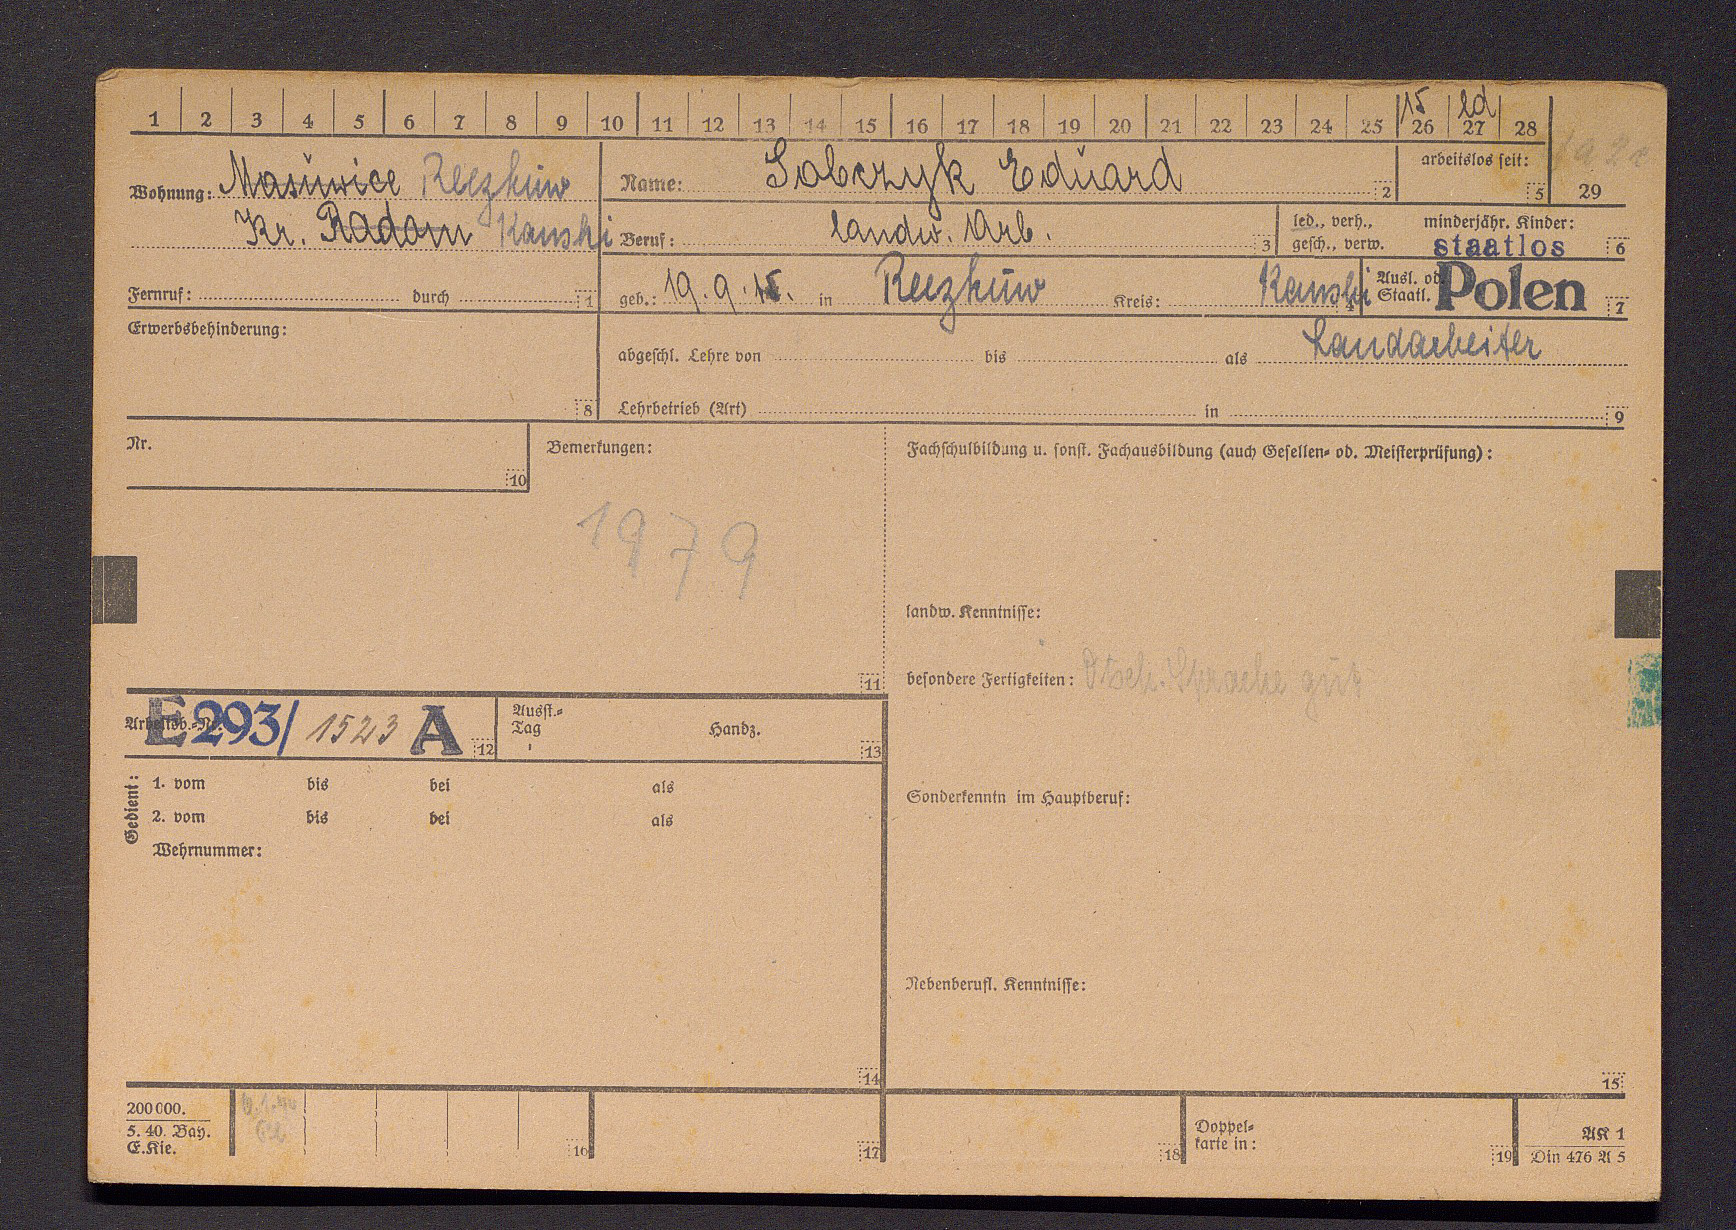 1 2 3 4 5 6 7 8 9 10 11 12 13 14 15 16 17 18 19 20 21 22 23 24 25 26 27 28
15 ld
arbeitslos seit:
5 29
Wohnung: Masuwice
Name: Sobczyk Eduard 2
Kr. Radom Kanski
Beruf: landw. Arb. 3
led., verh.,
gesch., verw.
minderjähr. Kinder:
staatlos 6
Fernruf: durch 1
geb.: 19.9.15. in Kreis: Kanski 4
Ausl. od.
Staatl. Polen 7
Erwerbsbehinderung:
8
abgeschl. Lehre von bis als Landarbeiter
Lehrbetrieb (Art) in 9
Nr.
10
Bemerkungen:
1979
11
Fachschulbildung u. sonst. Fachausbildung (auch Gesellen- od. Meisterprüfung):
landw. Kenntnisse:
besondere Fertigkeiten: Dtsch. Sprache gut
Arbeitsb.-Nr. E 293/ 1523 A 12
Ausst.-
Tag Handz.
13
Gedient:
1. vom bis bei als
2. vom bis bei als
Wehrnummer:
14
Sonderkenntn im Hauptberuf:
Nebenberufl. Kenntnisse:
15
200000.
5. 40. Bay.
E.Kie.
16
17
18
Doppel-
karte in:
19
AK 1
Din 476 A 5